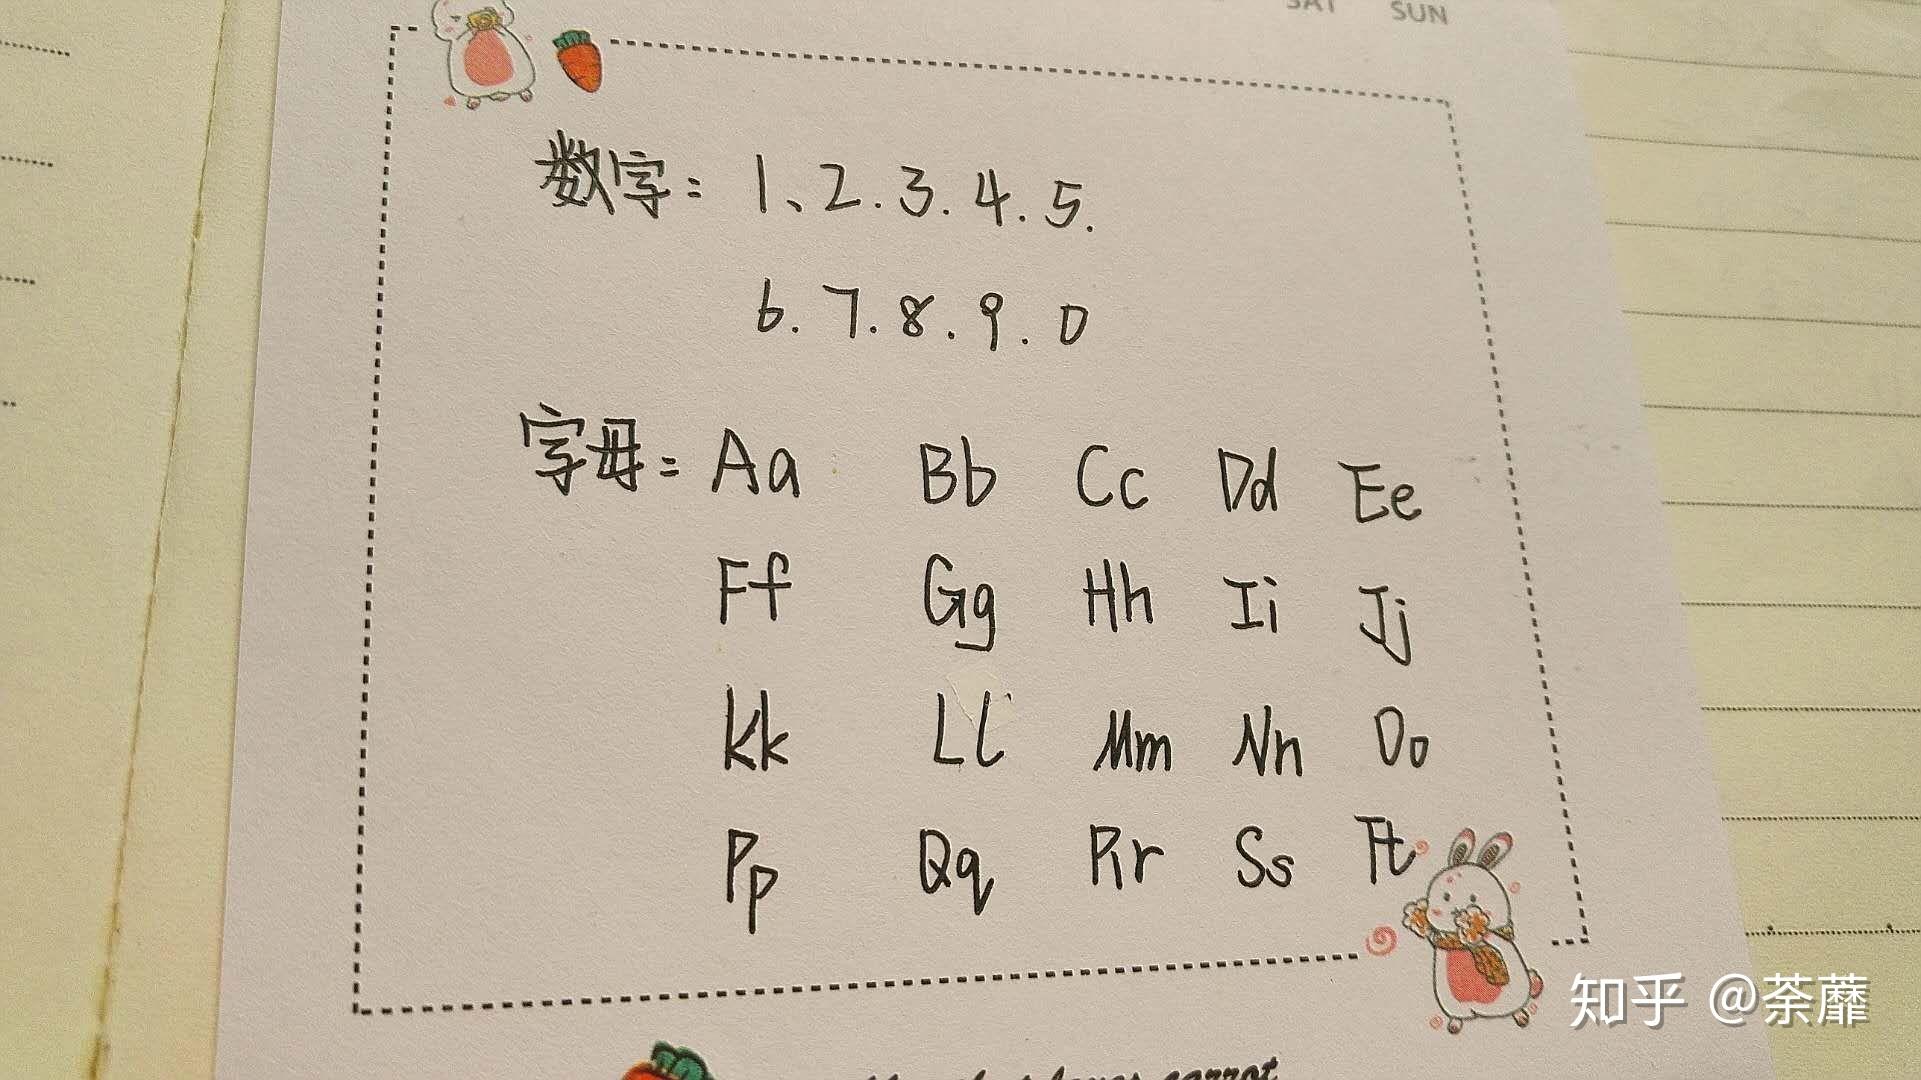 SAT SUN
数字: 1、2.3.4.5.
6.7.8.9.0
字母: Aa Bb Cc Dd Ee
Ff Gg Hh Ii Jj
Kk Ll Mm Nn Oo
Pp Qq Rr Ss Tt
知乎 @荼蘼
carrot